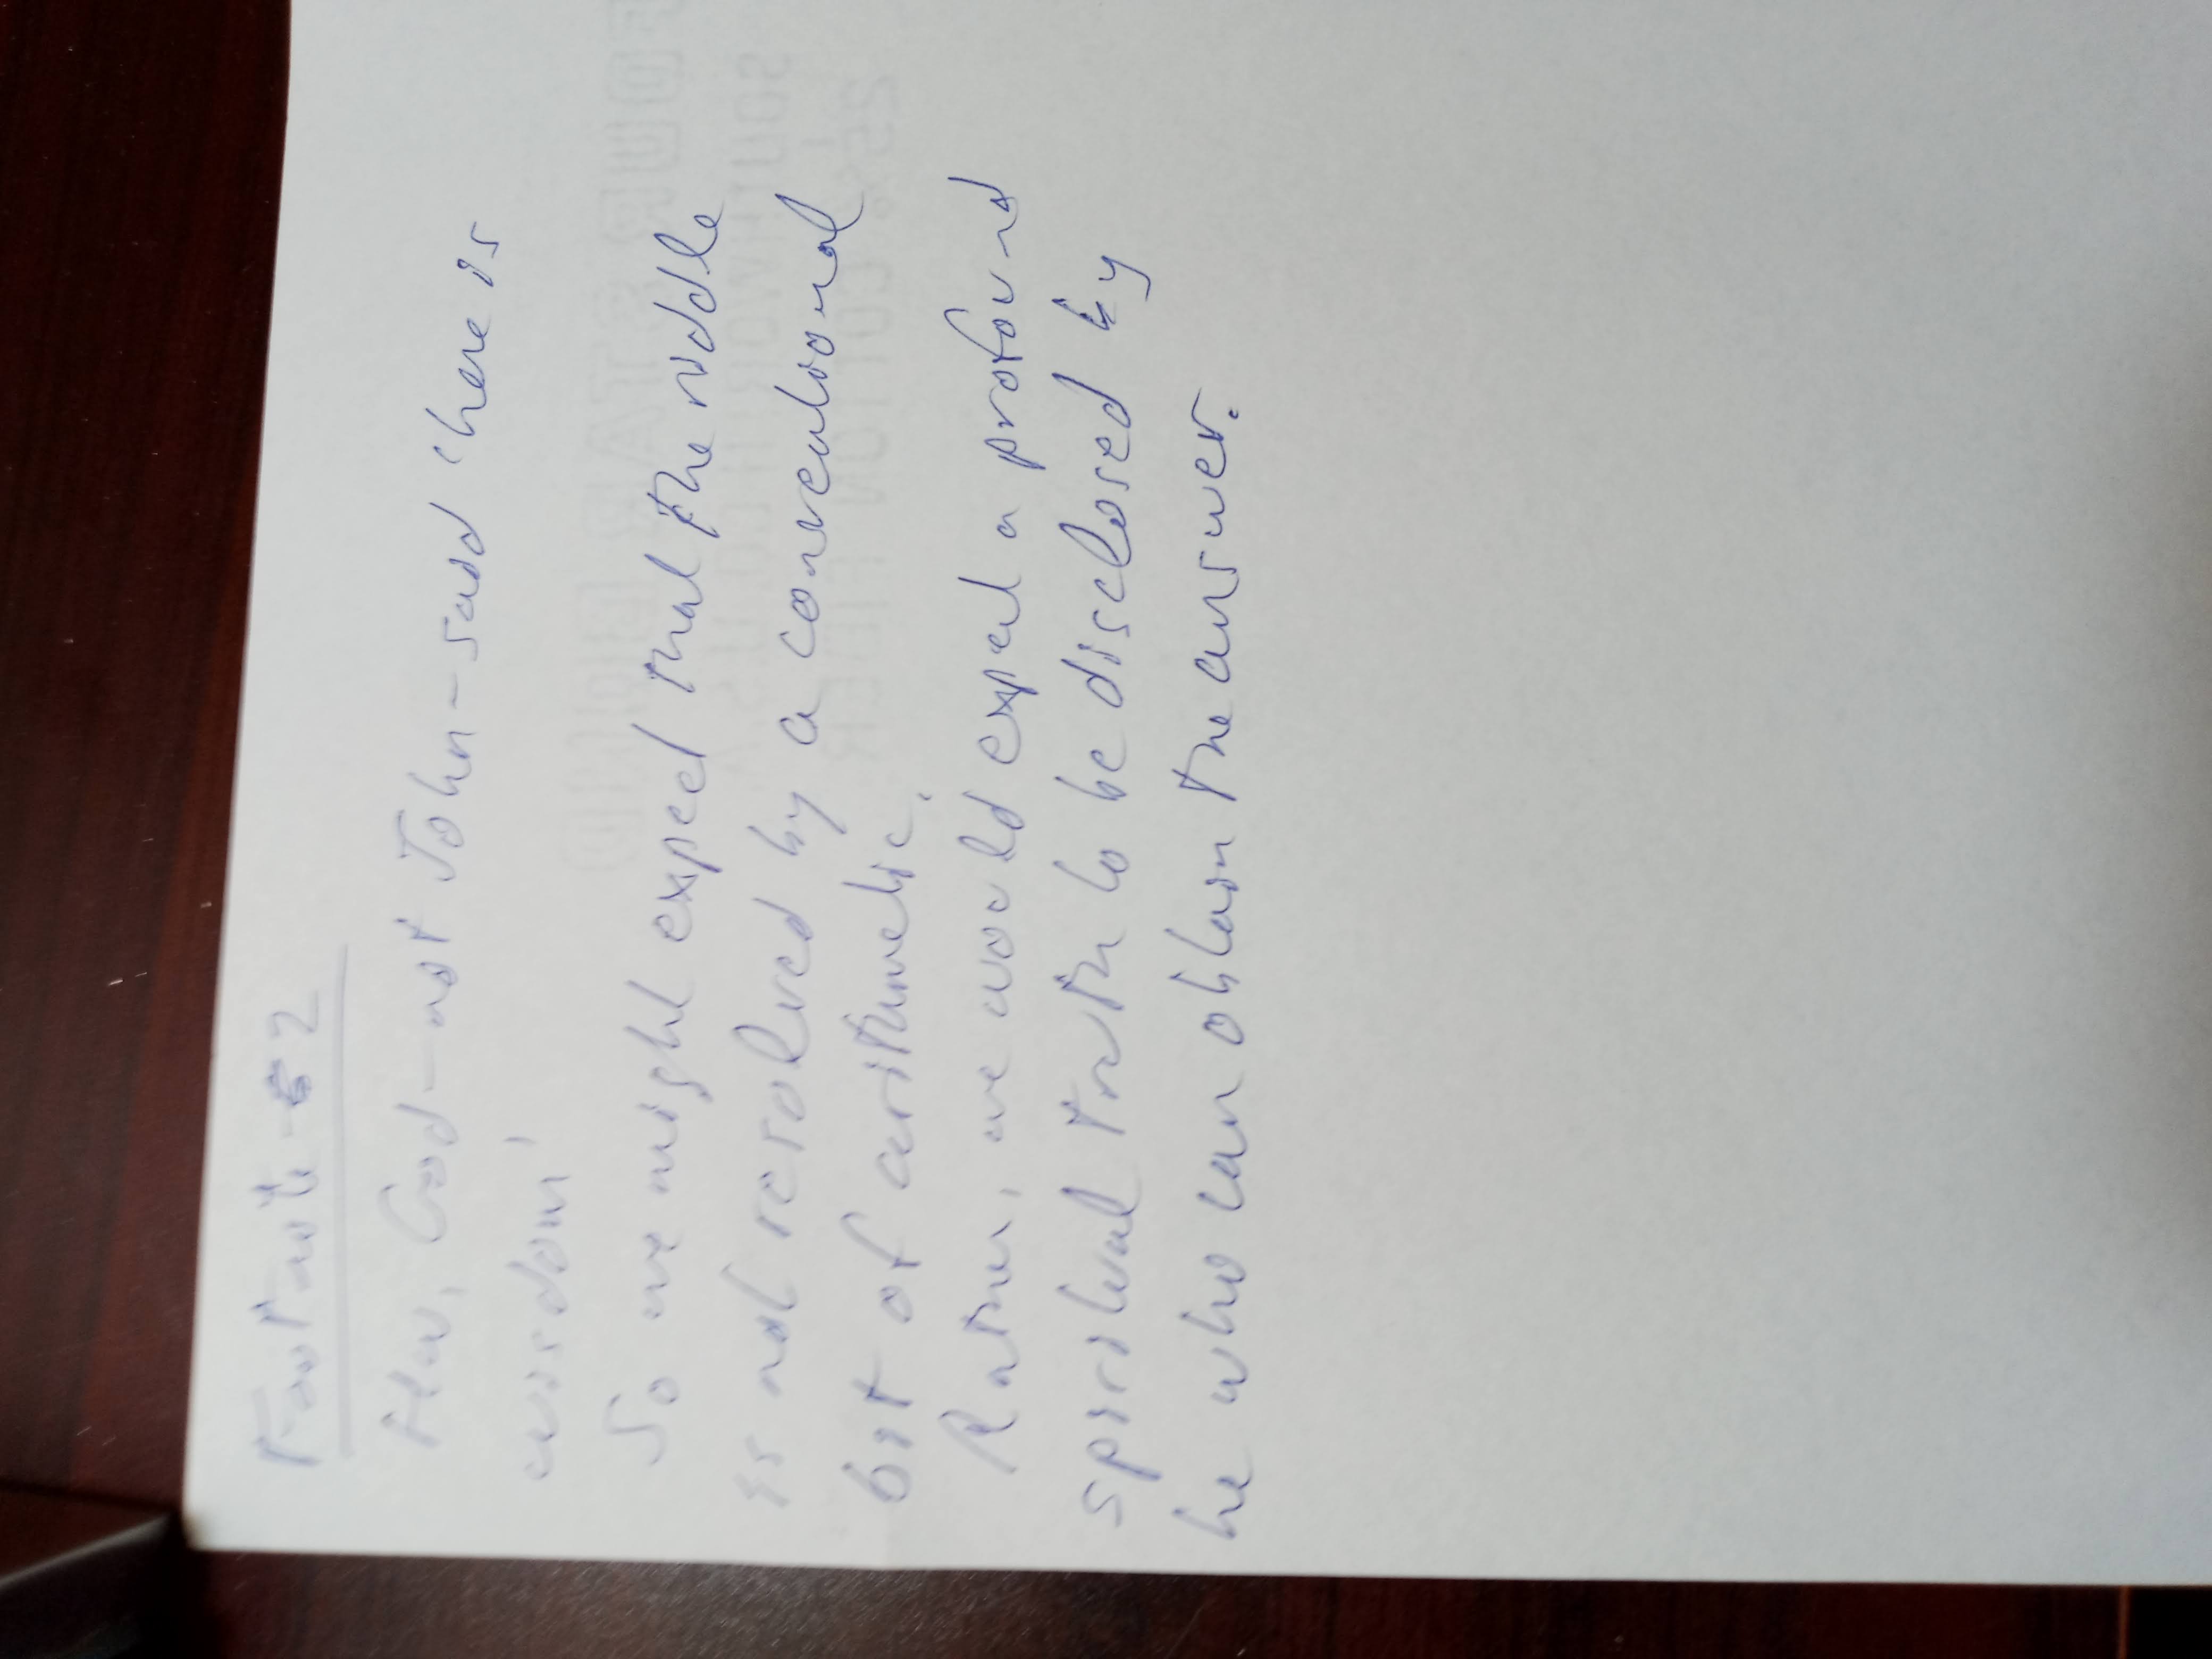 Footnote 2
How, God - not John - said 'here is
wisdom'
So we might expect that the riddle
is not resolved by a conventional
bit of arithmetic.
Rather, we would expect a profound
spiritual truth to be disclosed by
he who can obtain the answer.